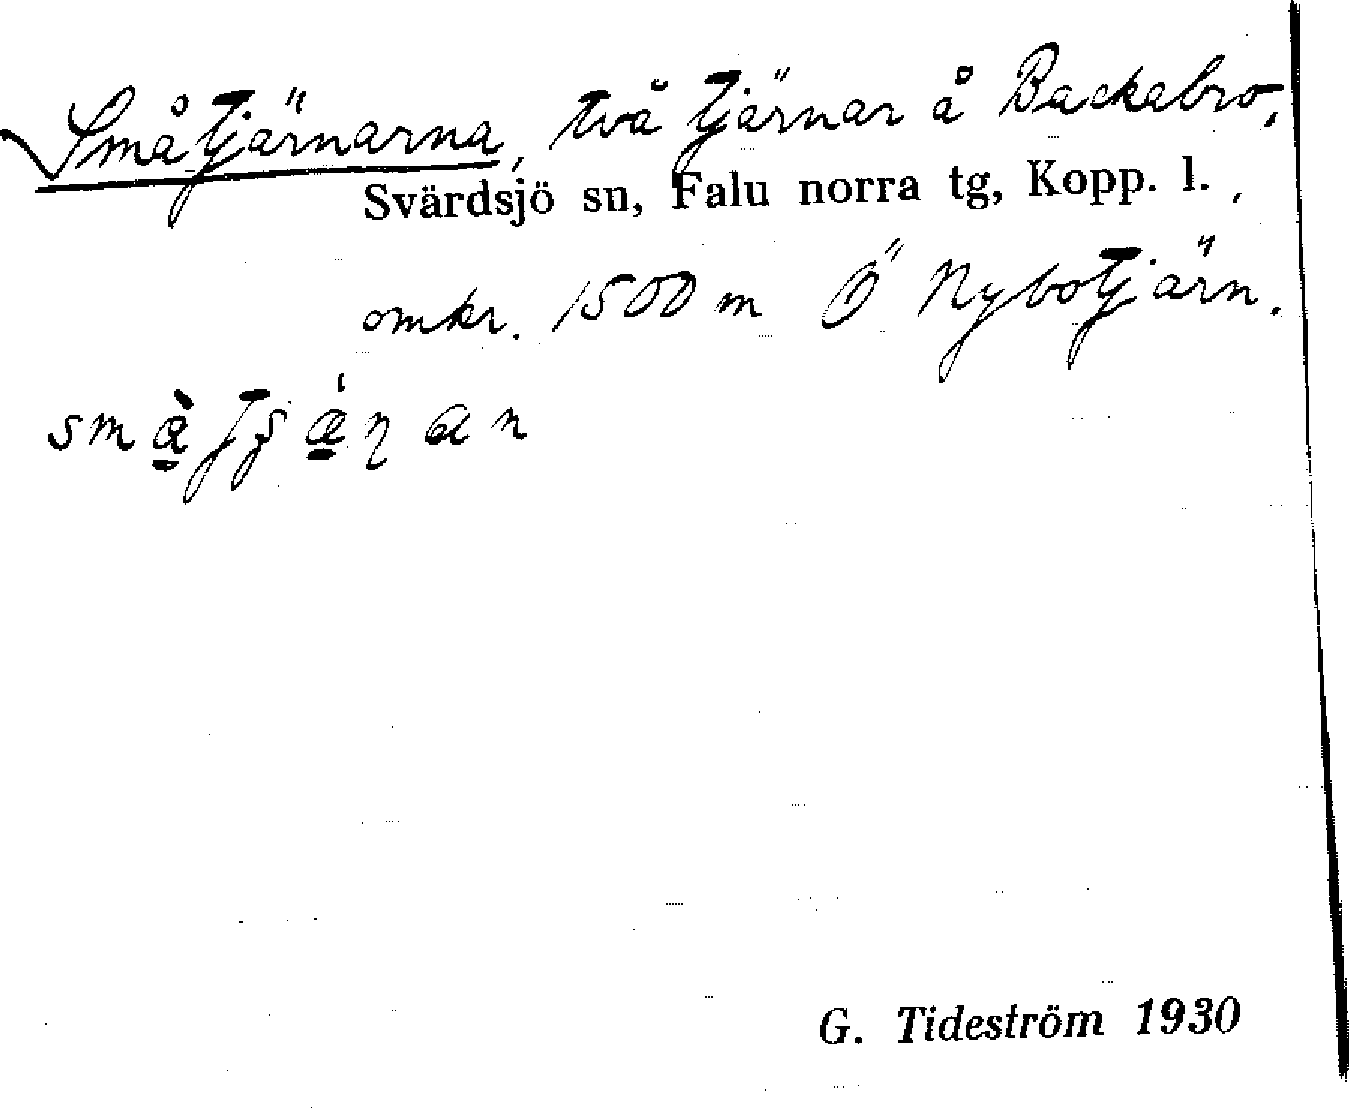 Småtjärnarna, två tjärnar å Backabro,
Svärdsjö sn, Falu norra tg, Kopp. l. ,
omkr. 1500 m Ö Nybotjärn.
G. Tideström 1930